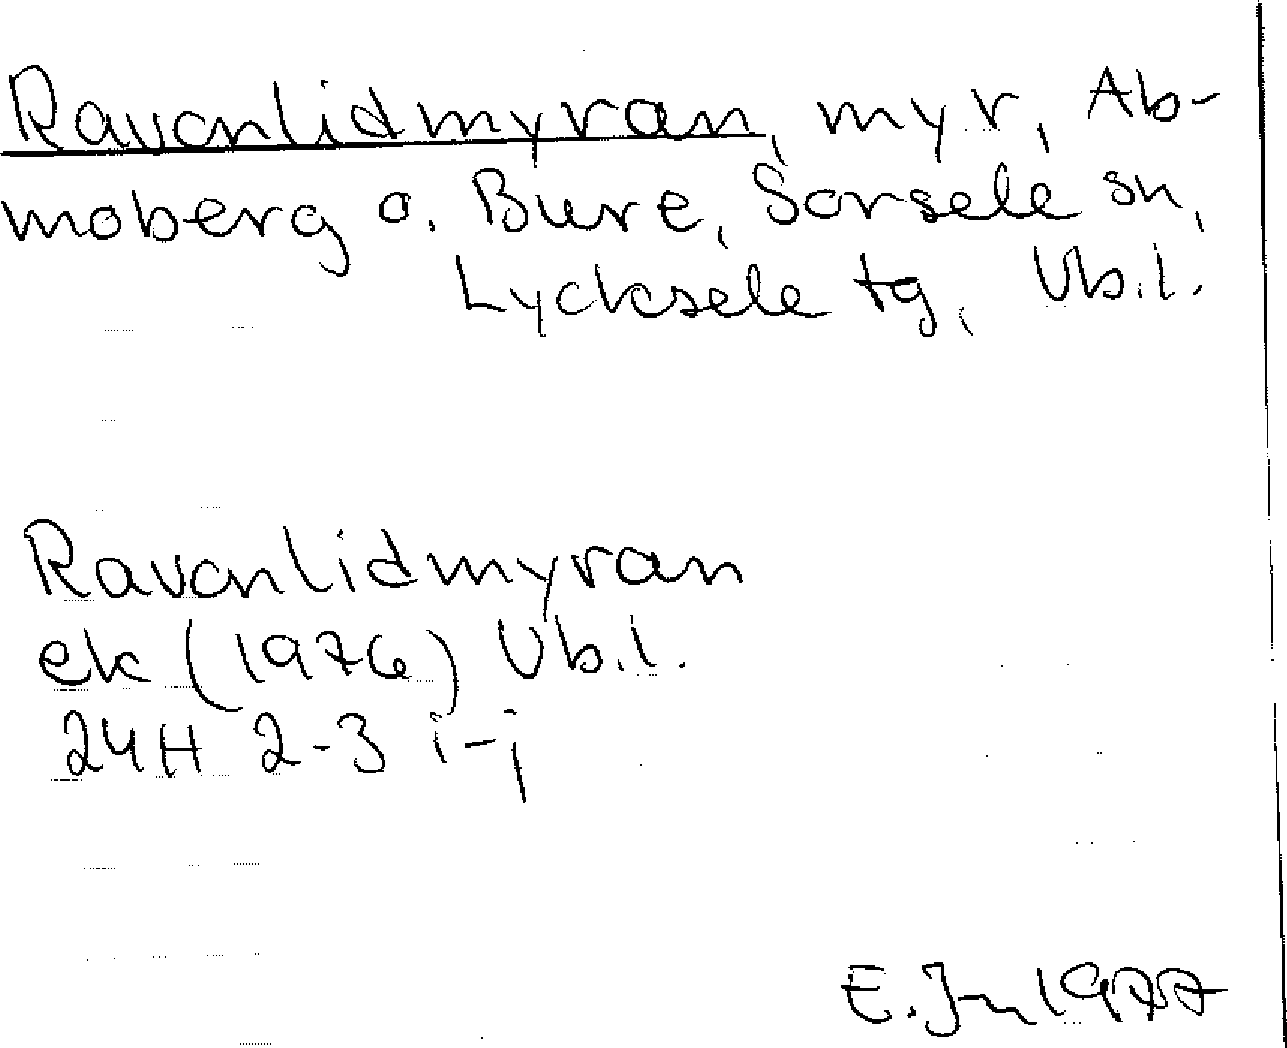 Ravonlidmyran, myr, Ab-
moberg o. Bure, Sorsele sn,
Lycksele tg, Vb.l.
Ravonlidmyran
ek (1976) Vb.l.
24H 2-3 i-j
E. 1977